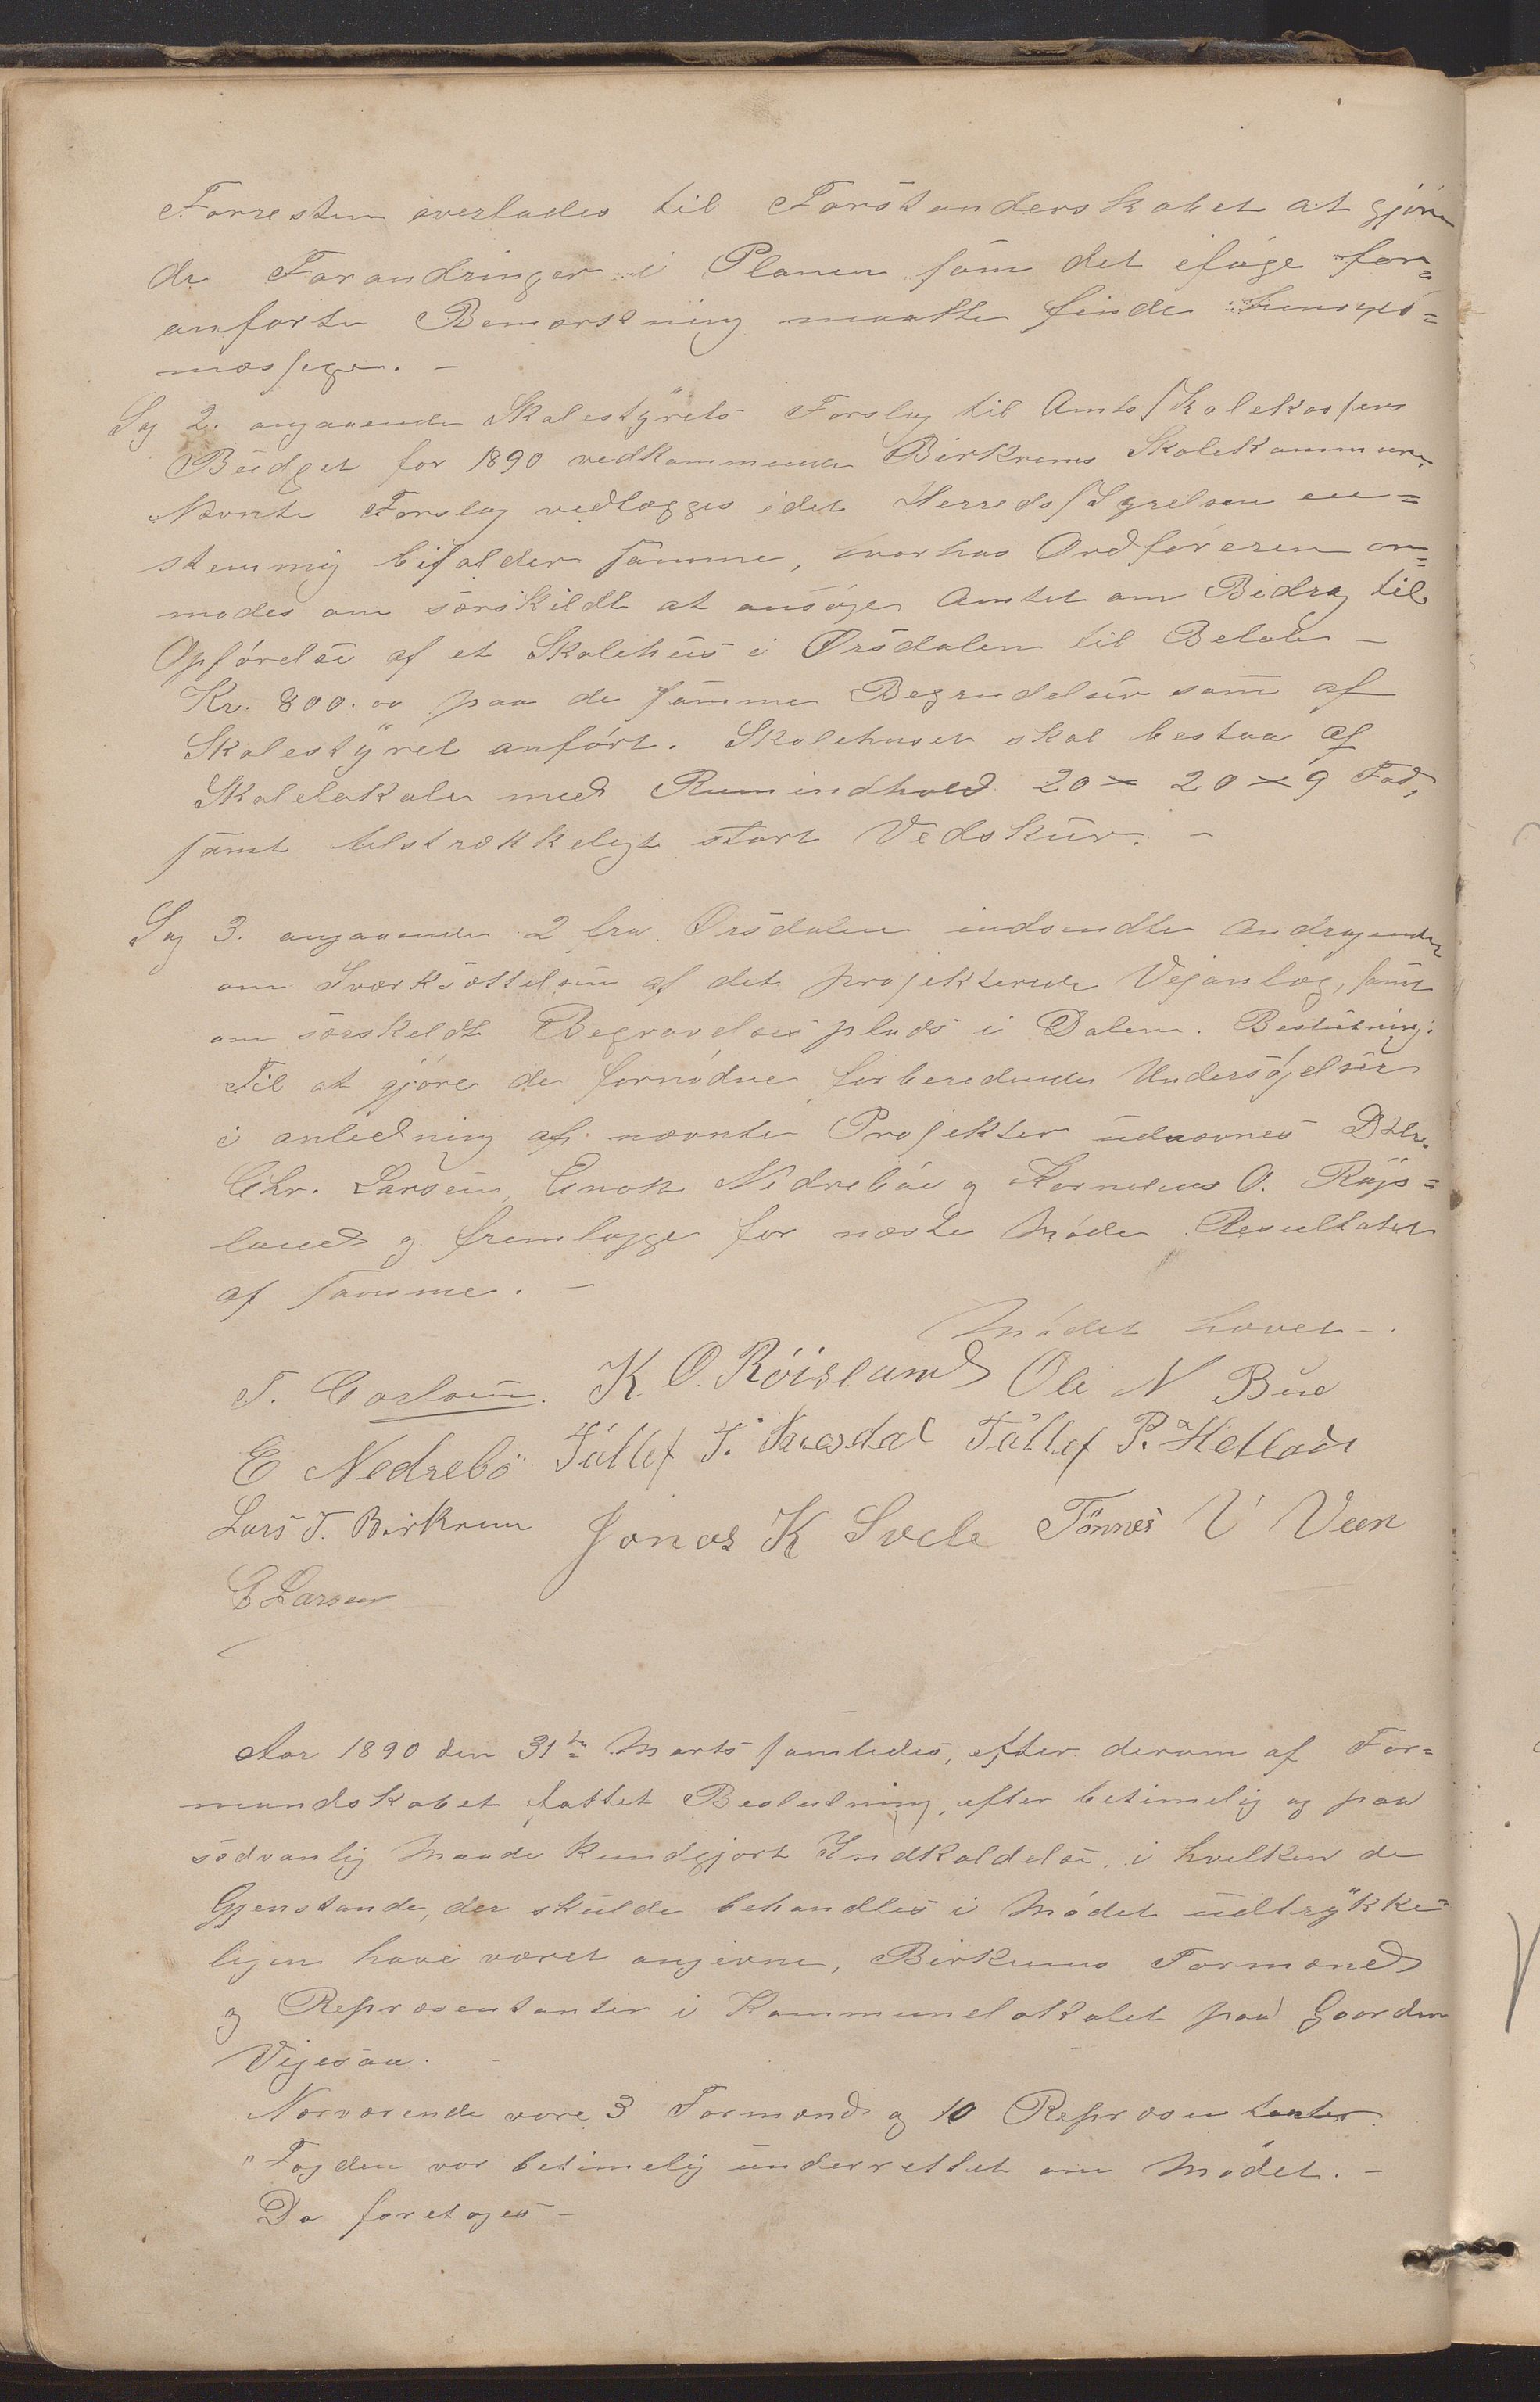 Forresten overlades til Forstanderskabet at gjøre
de Forandringer i Planen som det ifølge for=
anførte Bemærkning maatte finde hensigts=
mæssige. -
Sag 2. angaaende Skolestyrets Forslag til Amtsskolekassens
Budget for 1890 vedkommende Birkrems Skolekommune.
Nævnte Forslag vedlægges idet Herredsstyrelsen en=
stemmig bifalder samme, hvorhos Ordføreren an=
modes om særskildt at ansøge Amtet om Bidrag til
Opførelse af et Skolehus i Ørsdalen til Beløb -
Kr. 800.00 paa de samme Begrundelser som af
Skolestyret anført. Skolehuset skal bestaa af
Skolelokale med Rumindhold 20 x 20 x 9 Fod,
samt tilstrækkeligt stort Vedskur. -
Sag 3. angaaende 2 fra Ørsdalen indsendte Andragender
om Iværksættelsen af det projekterede Vejanlæg, samt
om særskildt Begravelsesplads i Dalen. Beslutning:
Til at gjøre de fornødne forberedende Undersøgelser
i anledning af nævnte Projekter udnævnes DHr.
Chr. Larsen, Enok Nedrebøe og Kornelius O. Røys=
land og fremlægge for næste Møde Resultatet
af samme. -
Mødet hævet -.
T. Carlsen. K. O. Röisland Ole N Bue
E Nedrebö Tållef T. Præsdal Tållef P. Hetland
Lars T. Birkrem Jonas K Svele Tönnes V Veen
C Larsen
Aar 1890 den 31te Marts samledes, efter derom af For=
mandskabet fattet Beslutning, efter betimelig og paa
sædvanlig Maade kundgjort Indkaldelse, i hvilken de
Gjenstande, der skulde behandles i Mødet udtrykke=
ligen have været angivne, Birkrems Formænd
og Repræsentanter i Kommunelokalet paa Gaarden
Vigesaa.
Nærværende vare 3 Formænd og 10 Repræsentanter.
Fogden var betimelig underrettet om Mødet. -
Da foretoges -